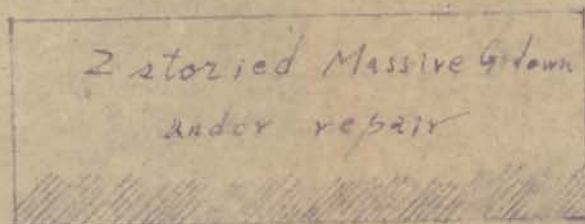 2 storied Massive Godown
under repair